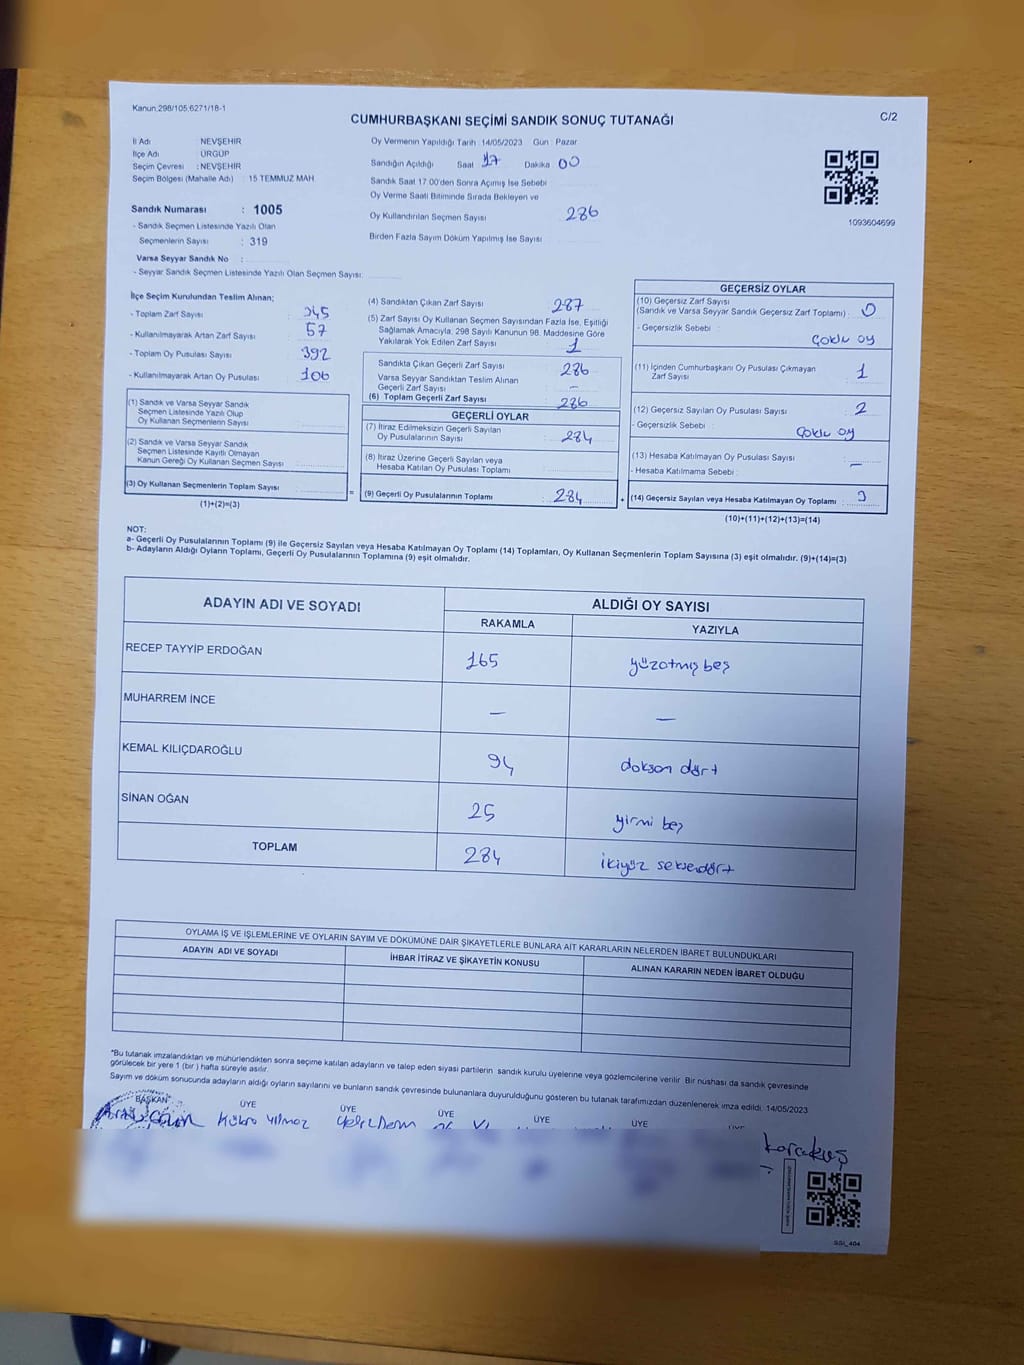 Kanun:298/105;6271/18-1
CUMHURBAŞKANI SEÇİMİ SANDIK SONUÇ TUTANAĞI
C/2
İl Adı NEVŞEHİR
İlçe Adı ÜRGÜP
Seçim Çevresi : NEVŞEHİR
Seçim Bölgesi (Mahalle Adı) : 15 TEMMUZ MAH
Sandık Numarası : 1005
- Sandık Seçmen Listesinde Yazılı Olan
Seçmenlerin Sayısı : 319
Varsa Seyyar Sandık No :
- Seyyar Sandık Seçmen Listesinde Yazılı Olan Seçmen Sayısı:
Oy Vermenin Yapıldığı Tarih : 14/05/2023 Gün : Pazar
Sandığın Açıldığı Saat 17 Dakika 00
Sandık Saat 17:00'den Sonra Açımış İse Sebebi
Oy Verme Saati Bitiminde Sırada Bekleyen ve
Oy Kullandırılan Seçmen Sayısı 286
Birden Fazla Sayım Döküm Yapılmış İse Sayısı
1093604699
İlçe Seçim Kurulundan Teslim Alınan;
- Toplam Zarf Sayısı : 345
- Kullanılmayarak Artan Zarf Sayısı : 57
- Toplam Oy Pusulası Sayısı : 392
- Kullanılmayarak Artan Oy Pusulası : 106
(1) Sandık ve Varsa Seyyar Sandık
Seçmen Listesinde Yazılı Olup
Oy Kullanan Seçmenlerin Sayısı :
(2) Sandık ve Varsa Seyyar Sandık
Seçmen Listesinde Kayıtlı Olmayan
Kanun Gereği Oy Kullanan Seçmen Sayısı :
(3) Oy Kullanan Seçmenlerin Toplam Sayısı :
(1)+(2)=(3)
(4) Sandıktan Çıkan Zarf Sayısı 287
(5) Zarf Sayısı Oy Kullanan Seçmen Sayısından Fazla İse, Eşitliği
Sağlamak Amacıyla, 298 Sayılı Kanunun 98. Maddesine Göre
Yakılarak Yok Edilen Zarf Sayısı : 1
Sandıkta Çıkan Geçerli Zarf Sayısı : 286
Varsa Seyyar Sandıktan Teslim Alınan
Geçerli Zarf Sayısı : –
(6) Toplam Geçerli Zarf Sayısı : 286
GEÇERLİ OYLAR
(7) İtiraz Edilmeksizin Geçerli Sayılan
Oy Pusulalarının Sayısı : 284
(8) İtiraz Üzerine Geçerli Sayılan veya
Hesaba Katılan Oy Pusulası Toplamı :
= (9) Geçerli Oy Pusulalarının Toplamı : 284 +
GEÇERSİZ OYLAR
(10) Geçersiz Zarf Sayısı
(Sandık ve Varsa Seyyar Sandık Geçersiz Zarf Toplamı) : 0
- Geçersizlik Sebebi :
Çoklu oy
(11) İçinden Cumhurbaşkanı Oy Pusulası Çıkmayan
Zarf Sayısı : 1
(12) Geçersiz Sayılan Oy Pusulası Sayısı : 2
- Geçersizlik Sebebi : Çoklu oy
(13) Hesaba Katılmayan Oy Pusulası Sayısı : –
- Hesaba Katılmama Sebebi :
(14) Geçersiz Sayılan veya Hesaba Katılmayan Oy Toplamı : 3
(10)+(11)+(12)+(13)=(14)
NOT:
a- Geçerli Oy Pusulalarının Toplamı (9) ile Geçersiz Sayılan veya Hesaba Katılmayan Oy Toplamı (14) Toplamları, Oy Kullanan Seçmenlerin Toplam Sayısına (3) eşit olmalıdır. (9)+(14)=(3)
b- Adayların Aldığı Oyların Toplamı, Geçerli Oy Pusulalarının Toplamına (9) eşit olmalıdır.
ADAYIN ADI VE SOYADI ALDIĞI OY SAYISI
RAKAMLA YAZIYLA
RECEP TAYYİP ERDOĞAN 165 yüzatmış beş
MUHARREM İNCE – –
KEMAL KILIÇDAROĞLU 94 doksan dört
SİNAN OĞAN 25 yirmi beş
TOPLAM 284 ikiyüz seksendört
OYLAMA İŞ VE İŞLEMLERİNE VE OYLARIN SAYIM VE DÖKÜMÜNE DAİR ŞİKAYETLERLE BUNLARA AİT KARARLARIN NELERDEN İBARET BULUNDUKLARI
ADAYIN ADI VE SOYADI İHBAR İTİRAZ VE ŞİKAYETİN KONUSU ALINAN KARARIN NEDEN İBARET OLDUĞU
*Bu tutanak imzalandıktan ve mühürlendikten sonra seçime katılan adayların ve talep eden siyasi partilerin sandık kurulu üyelerine veya gözlemcilerine verilir. Bir nüshası da sandık çevresinde
görülecek bir yere 1 (bir ) hafta süreyle asılır.
Sayım ve döküm sonucunda adayların aldığı oyların sayılarını ve bunların sandık çevresinde bulunanlara duyurulduğunu gösteren bu tutanak tarafımızdan düzenlenerek imza edildi. 14/05/2023
BAŞKAN ÜYE ÜYE ÜYE ÜYE ÜYE
Kübra Yılmaz
karakuş
SSI_404